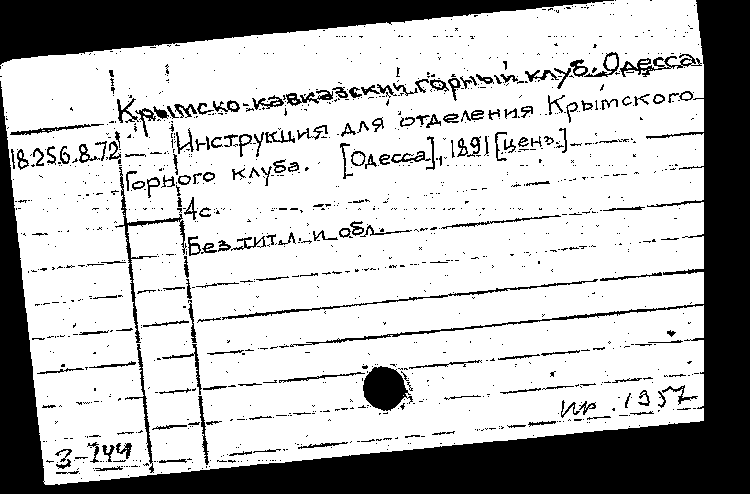 Крымско-кавказский горный клуб. Одесса.
18.256.8.72
Инструкция для отделения Крымского
Горного клуба. [Одесса], 1891 [ценз.]
4с.
Без тит.л. и обл.
пр. 1957
3-744